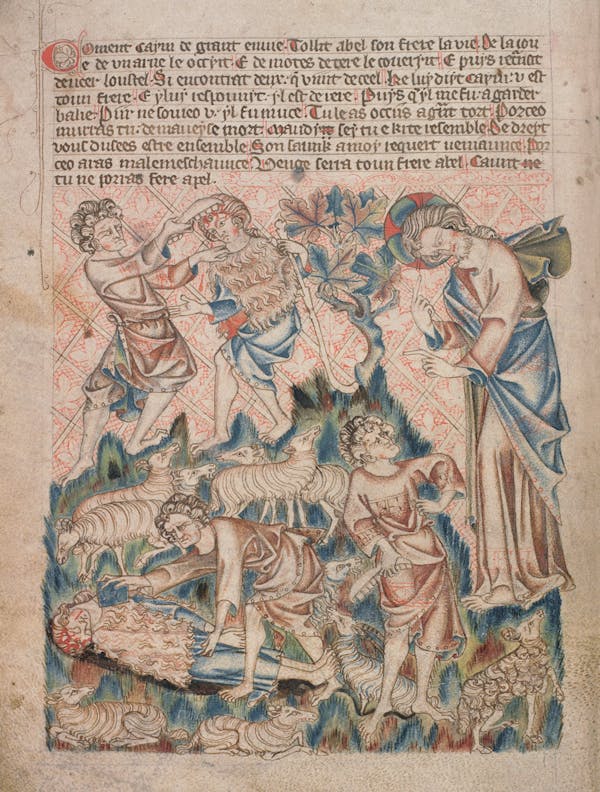 Coment caym de graunt enuie. Tollit abel son frere la vie. De la jou
e de vn asne le occyt. E de motes de tere le coueryt. E puys
loustel. Si encontrat deux q vint de ceel. Ke luy dyt Caym: v est
toun frere. E yluy respounyt. yl est derere. Puys q yl me fu a garder
balie. Pur ne v. yl fu muce. Tu le as occis a tort. Por ceo
murras tu: de mort. Maudyt sey tu e ki te resemble. De dreyt
vous dusees estre ensemble. Son saunk a moy requert veniaunce. Por
ceo aras male meschaunce. Venge serra toun frere abel. Caunt ne
tu ne porras fere apel.